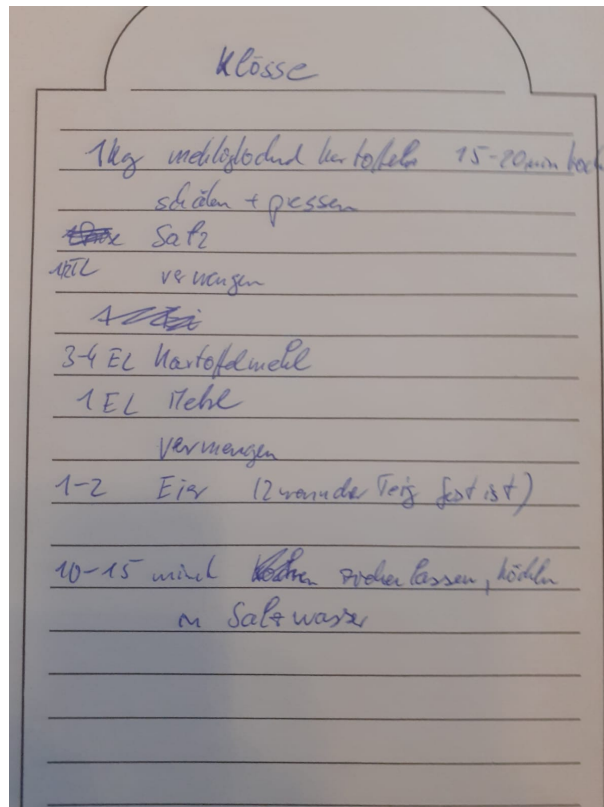 Klösse
1kg mehligkochend Kartoffeln 15-20min koch
schälen + pressen
Salz
1 TL vermengen
3-4 EL Kartoffelmehl
1 EL Mehl
vermengen
1-2 Eier (2 wenn der Teig fest ist)
10-15 min ziehen lassen, köcheln
in Salzwasser